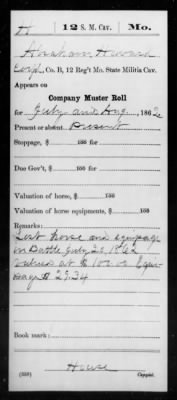 H 12 S. M. Cav. Mo.
Abraham Howard
Corp., Co. B, 12 Reg't Mo. State Militia Cav.
Appears on
Company Muster Roll
for July and Aug., 1862
Present or absent Present
Stoppage, $ 100 for
Due Gov't, $ 100 for
Valuation of horse, $ 100
Valuation of horse equipments, $ 100
Remarks:
Lost horse and equipage
in Battle July 1862
values at $
$ 29.34
Book mark:
(358) Copyist.